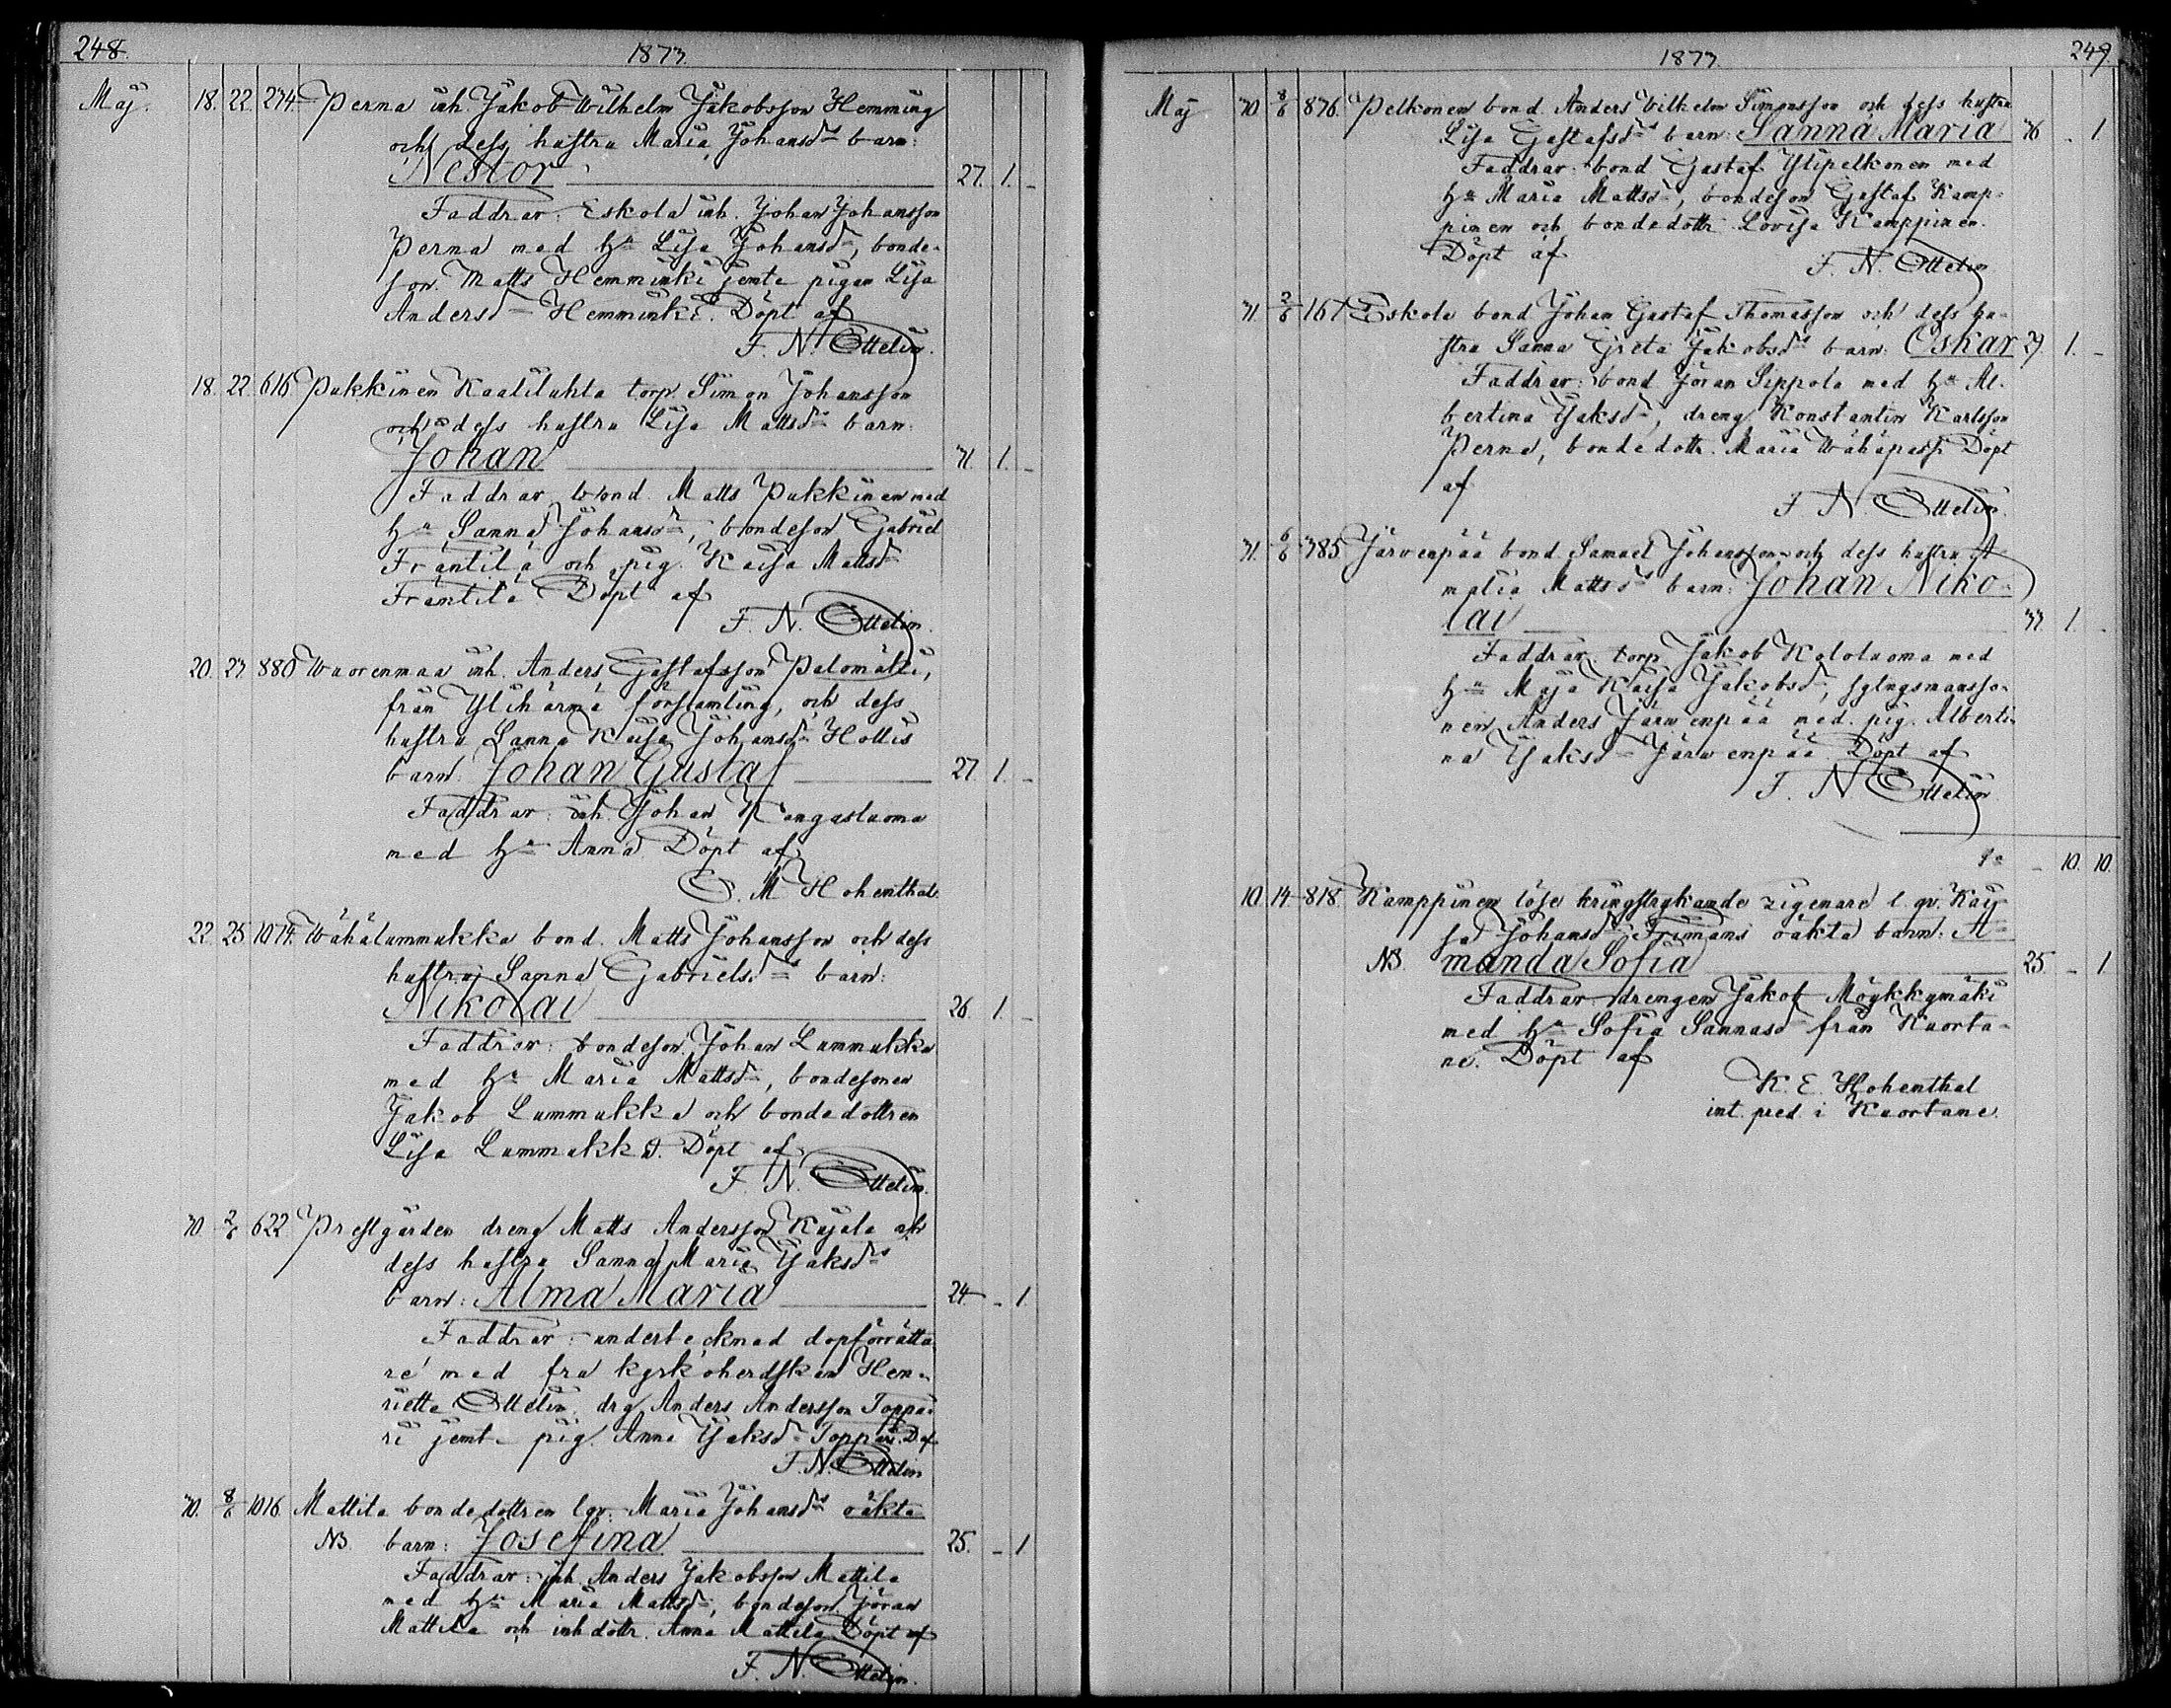 248.
1873.
Maj. 18. 22. 274 Perna inh. Jakob Wilhelm Jakobsson Hemming
och dess hustru Maria Johansdr barn:
Nestor 27. 1. -
Faddrar: Eskola inh. Johan Johansson
Perna med hu Lisa Johansdr, bonde-
son Matts Hemminki jemte pigan Lisa
Andersdr Hemminki. Döpt af
F. N. Ottelin.
18. 22. 616 Pukkinen Kaaliluhta torp. Simon Johansson
och dess hustru Lisa Mattsdr barn:
Johan 31. 1. -
Faddrar bond. Matts Pukkinen med
hu Sanna Johansdr, bondeson Gabriel
Frantila och pig. Kaisa Mattsdr
Frantila. Döpt af
F. N. Ottelin.
20. 23. 880 Wuorenmaa inh. Anders Gustafsson Palomäki,
från Ylihärmä församling, och dess
hustru Sanna Kaisa Johansdr Hollis
barn: Johan Gustaf 27 1. -
Faddrar: inh. Johan Kangasluoma
med hu Anna. Döpt af
M Hohenthal.
22. 25. 1074. Wähälummukka bond. Matts Johansson och dess
hustru Sanna Gabrielsdr barn:
Nikolai 26. 1. -
Faddrar: bondeson Johan Lummukka
med hu Maria Mattsdr, bondesonen
Jakob Lummukka och bondedottren
Lisa Lummukka. Döpt af
F. N. Ottelin.
30. 2/6 622 Prestgården dreng Matts Andersson Kujala och
dess hustru Sanna Maria Jaksdr
barn: Alma Maria 24 - 1.
Faddrar: undertecknad dopförrätta-
re med fru kyrkoherdskan Hen-
riette Ottelin, drg Anders Andersson Toppa-
ri jemte pig. Anna Jaksdr Toppari. D. af
F. N. Ottelin
30. 8/6 1016. Mattila bondedottren lqv. Maria Johansdr oäkta
NB. barn: Josefina 25. - 1
Faddrar: inh. Anders Jakobsson Mattila
med hu Maria Mattsdr, bondeson Jöran
Mattila och inh dottr. Anna Mattila. Döpt af
F. N. Ottelin.
1873
249.
Maj 30 8/6 876. Pelkonen bond. Anders Wilhelm Simonsson och dess hustru
Lisa Gustafsdr barn: Sanna Maria 36 - 1.
Faddrar: bond Gustaf Ylipelkonen med
hu Maria Mattsdr, bondeson Gustaf Kamp-
pinen och bondedottr Lovisa Kamppinen.
Döpt af F. N. Ottelin
31. 2/6 167 Eskola bond Johan Gustaf Thomasson och dess hu-
stru Sanna Greta Jakobsdr barn: Oskar 29 1. -
Faddrar: bond Jöran Sippola med hu Al-
bertina Jaksdr, dreng Konstantin Karlsson
Perna, bondedottr. Maria Wähäpassi. Döpt
af
F N. Ottelin.
31. 6/6 385 Järwenpää bond Samuel Johansson och dess hustru A-
malia Mattsdr barn: Johan Niko-
lai 33. 1. -
Faddrar torp Jakob Kololuoma med
hu Maja Kaisa Jakobsdr, sytngsmansso-
nen Anders Järwenpää med pig. Alberti-
na Jaksdr Järwenpää. Döpt af
F. N. Ottelin
- 10. 10.
10. 14. 818. Kamppinen löse kringstrykande zigenare l. qv. Kaj-
sa Johansdr Frimans oäkta barn: A-
NB. manda Sofia 25. - 1
Faddrar drengen Jakob Möykkymäki
med hu Sofia Sannasdr från Kuorta-
ne. Döpt af
K. E. Hohenthal
int. pred i Kuortane.